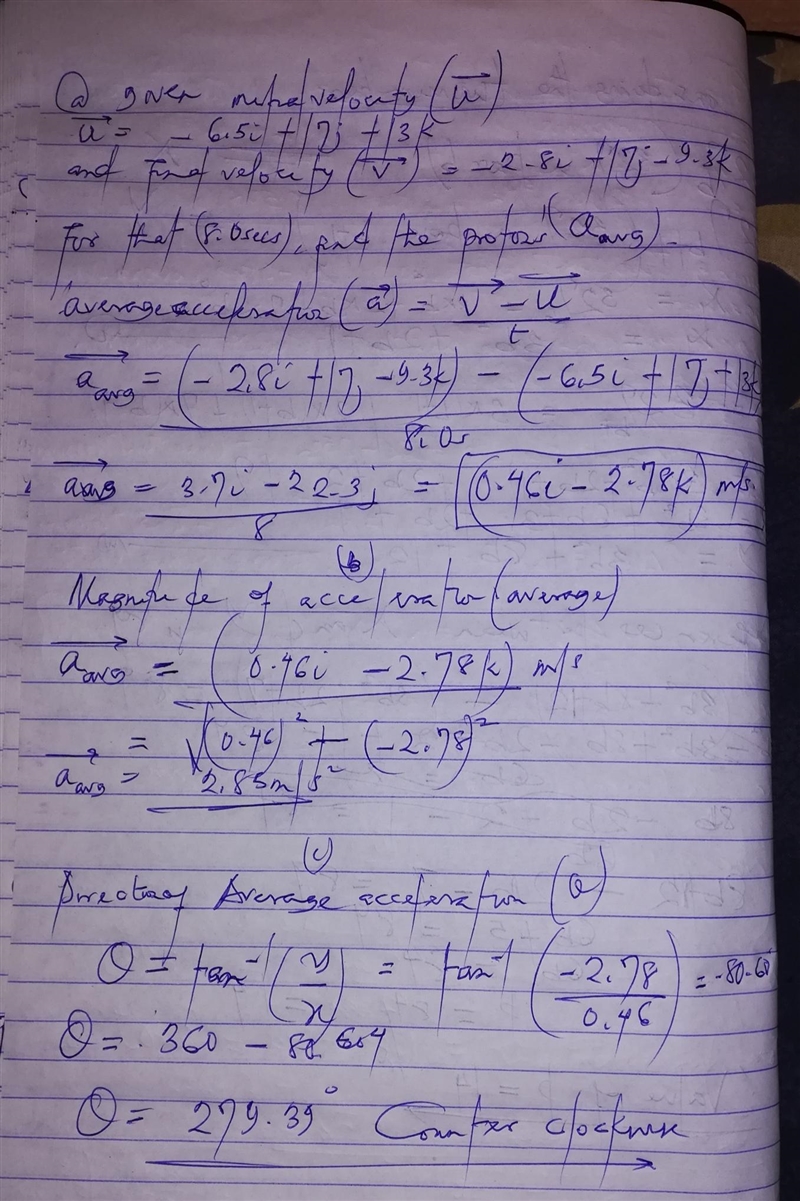 (a) given initial velocity (u)
u = -6.5i + 17j + 13k
and final velocity (v) = -2.8i + 17j - 9.3k
For that (8.0secs), find the proton's (a avg).
average acceleration (a) = v - u
t
a avg = (-2.8i + 17j - 9.3k) - (-6.5i + 17j + 13k)
8.0s
a avg = 3.7i - 22.3j = (0.46i - 2.78k) m/s.
8
(b)
Magnitude of acceleration (average)
a avg = (0.46i - 2.78k) m/s
= √(0.46)² + (-2.78)²
a avg = 2.85m/s²
(c)
Direction of Average acceleration (θ)
θ = tan⁻¹(y/x) = tan⁻¹(-2.78/0.46) = -80.60
θ = 360 -
θ = 279.39° Counter clockwise